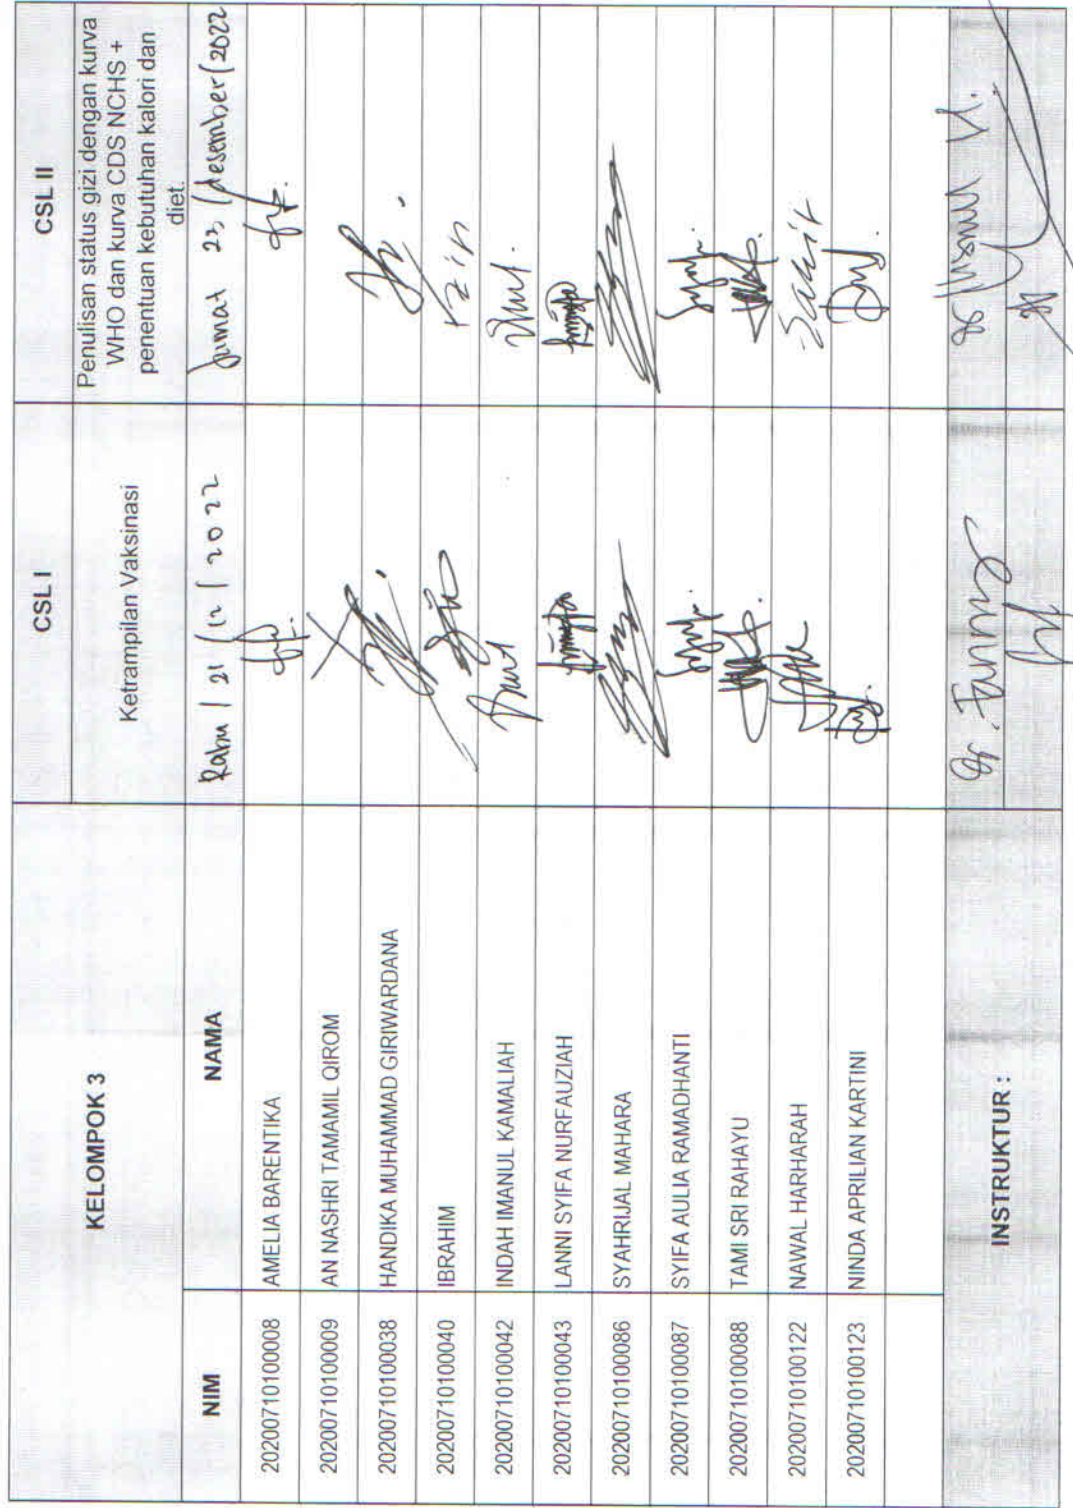 KELOMPOK 3
CSL I
CSL II
Ketrampilan Vaksinasi
Penulisan status gizi dengan kurva
WHO dan kurva CDS NCHS +
penentuan kebutuhan kalori dan
diet.
NIM
NAMA
Rabu / 21 / 12 / 2022
Jumat 23 / desember / 2022
20200710100008 AMELIA BARENTIKA
20200710100009 AN NASHRI TAMAMIL QIROM
20200710100038 HANDIKA MUHAMMAD GIRIWARDANA
20200710100040 IBRAHIM Izin
20200710100042 INDAH IMANUL KAMALIAH
20200710100043 LANNI SYIFA NURFAUZIAH
20200710100086 SYAHRIJAL MAHARA
20200710100087 SYIFA AULIA RAMADHANTI
20200710100088 TAMI SRI RAHAYU
20200710100122 NAWAL HARHARAH Sakit
20200710100123 NINDA APRILIAN KARTINI
INSTRUKTUR :